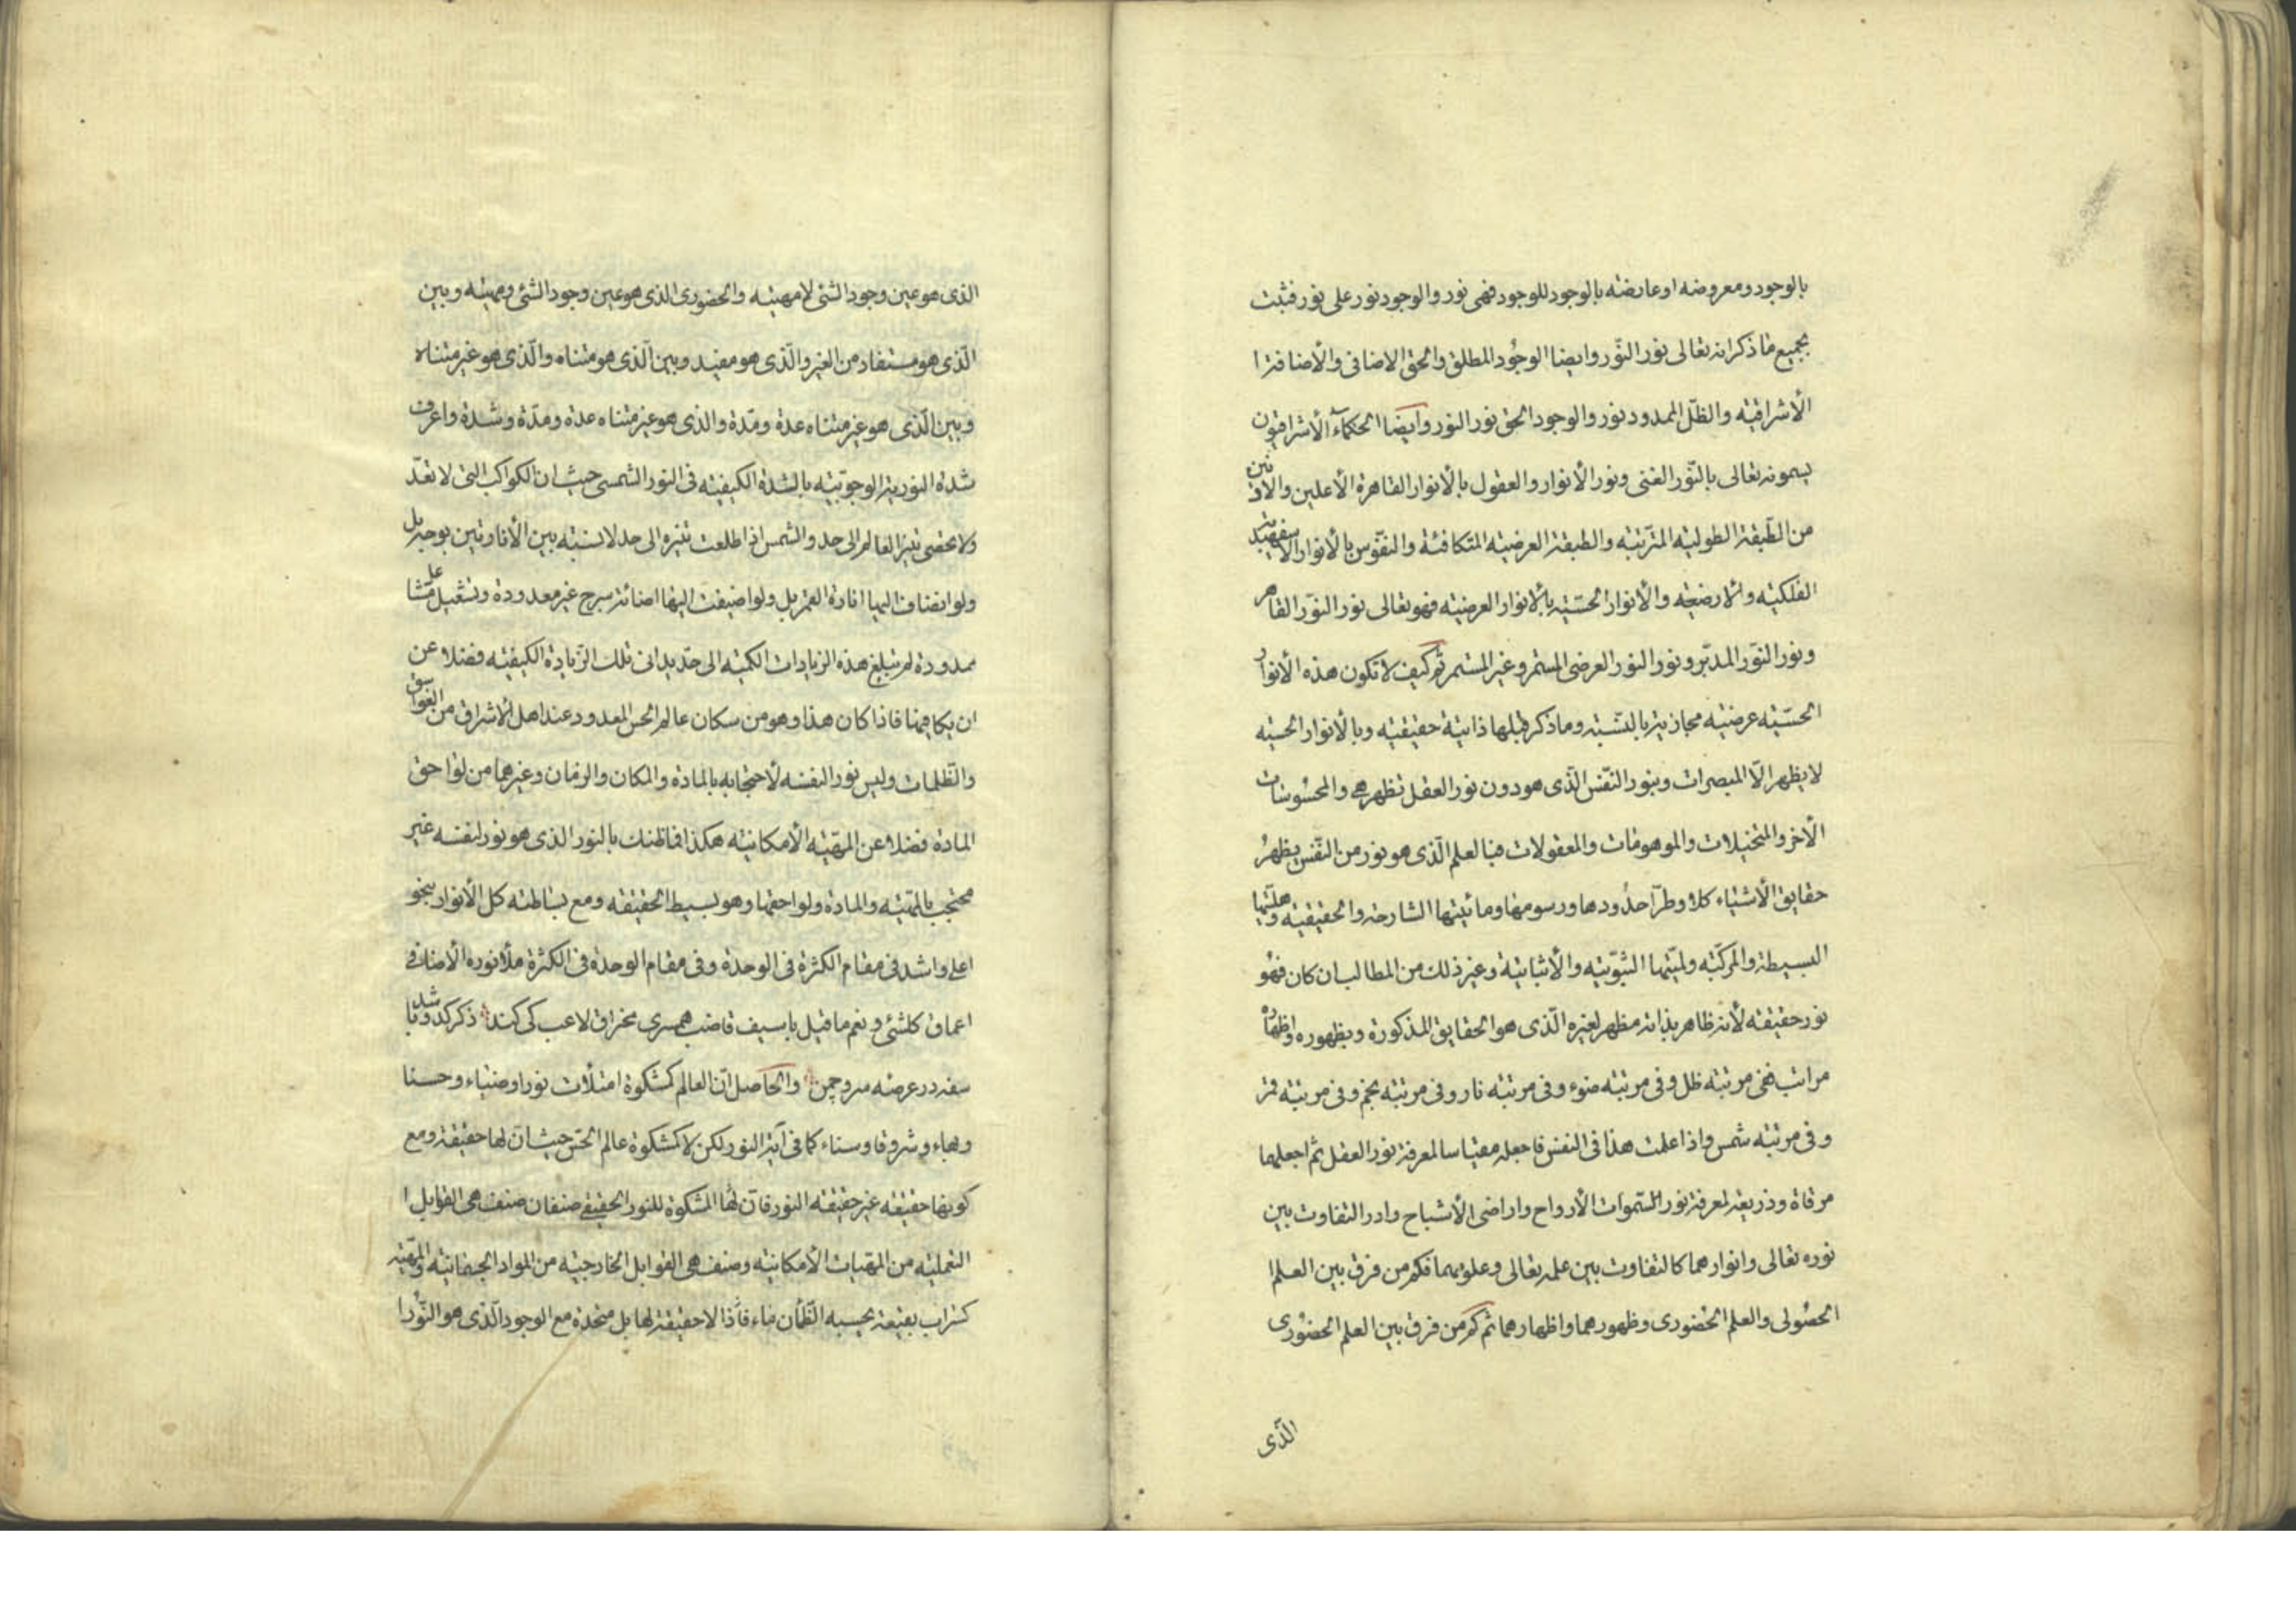 بالوجود ومعروضه او عارضته بالوجود للوجود فهى نور والوجود نور على نور فثبت
بجميع ما ذكر انه تعالى نور النّور وايضا الوجُود المطلق والحق الاضافى والأضافة ا
الأشراقيّه والظّل الممدود نور والوجود الحق نور النور وايضا الحكمآء الأشراقيون
يسمونه تعالى بالنّور الغنى ونور الأنوار والعقول بالأنوار القاهرة الأعلين والأدنين
من الطّبقة الطوليّه المترتبّه والطبقة العرضيّه المتكافئة والنفّوس بالأنوار الأسفهبديه
الفلكيّه والأرضيّه والأنوار الحسّيّه بالأنوار العرضيّه فهو تعالى نور النوّر القاهر
ونور النوّر المدبّر ونور النور العرضى المستمر وغير المستمر ثم كيف لا تكون هذه الأنوار
الحسّيّه عرضيّه مجازيّة بالنسّبة وما ذكر قبلها ذاتيّة حقيقيّه وبالأنوار الحسيّه
لا يظهر الّا المبصرات وبنور النّفس الّذى هو دون نور العقل تظهر هى والمحسُوسات
الأخر والمتخيلات والموهومات والمعقولات فبالعلم الّذى هو نور من النّفس يظهرُ
حقايق الأشياء كلا وطرّا حدُودها ورسومها ومائيتها الشارحة والحقيقيّه وهليّتها
البسيطة والمركّبّه ولميّتها الثبوّتيّه والأثباتيّة وغير ذلك من المطالب ان كان فهُو
نور حقيقته لأنه ظاهر بذاته مظهر لغيره الّذى هو الحقايق المذكورة وبظهوره واظهاره
مراتب ففى مرتبته ظل وفى مرتبته ضوء وفى مرتبته نار وفى مرتبته نجم وفى مرتبته قمر
وفى مرتبته شمس واذا علمت هذا فى النفس فاجعله مقياسا لمعرفة نور العقل ثم اجعلهما
مرقاة وذريعة لمعرفة نور السّموات الأرواح واراضى الأشباح وادر التفاوت بين
نوره تعالى وانوارهما كالتفاوت بين علمه تعالى وعلومهما فكم من فرق بين العلم ا
الحصُولى والعلم الحضورى وظهورهما واظهارهما ثم كم من فرق بين العلم الحضوُرى
الّذى
الذى هو عين وجود الشئ لا مهيته والحضورى الذى هو عين وجود الشئ ومهيته وبين
الّذى هو مستفاد من الغير والّذى هو مفيد وبين الّذى هو متناه والّذى هو غير متناه
وبين الّذى هو غير متناه عدة ومّدة والذى هو غير متناه عدة ومدّة وشدة واعرف
شدة النورية الوجوبّيّه بالشدة الكيفيّه فى النور الشمسى حيث ان الكواكب التى لا تعدّ
ولا تحصى تنير العالم الى حد والشمس اذا طلعت تنيره الى حد لا نسبته بين الأنارتين بوجه بل
ولو انضاف اليها انارة القمر بل ولو اضيفت اليها اضائة سرج غير معدودة وتشعيل مشاعل
ممدودة لم تبلغ هذه الزيادات الكميّه الى حدّ يدانى تلك الزّيادة الكيفيّه فضلا عن
ان يكافيها فاذا كان هذا وهو من سكان عالم الحس المعدود عند اهل الأشراق من الغواسق
والظلمات وليس نور النفسه لأحتجابه بالمادة والمكان والزمان وغيرهما من لواحق
المادة فضلا عن المهّيّه الأمكانيّه هكذا فما ظنك بالنور الذى هو نور لنفسه غير
محتجب بالمهّيّه والمادة ولواحقها وهو بسيط الحقيقه ومع بساطته كل الأنوار بنحو
اعلى واشد فى مقام الكثرة فى الوحدة وفى مقام الوحدة فى الكثرة ملأ نوره الأضافى
اعماق كلشئ ونعم ما قيل با سيف قاضب همسرى مخراق لاعب كى كند ذكر كدو باشد
سفه در عرضه سرو چمن والحاصل انّ العالم كمشكوة امتلأت نورا وضياء وحسنا
وبهاء وشروقا وسناء كما فى آية النور لكن لا كمشكوة عالم الحس حيث ان لها حقيقة ومع
كونها حقيقه غير حقيقه النور فان لها المشكوة للنور الحقيقى صنفان صنف هى القوابل ا
التعمليّه من المهّيات الأمكانيّه وصنف هى القوابل الخارجيّه من المواد الجسمانيّه والمهّيّه
كسراب بقيعة يحسبه الظّمأن ماء فأذا لا حقيقة لها بل متحدة مع الوجود الّذى هو النّور ا